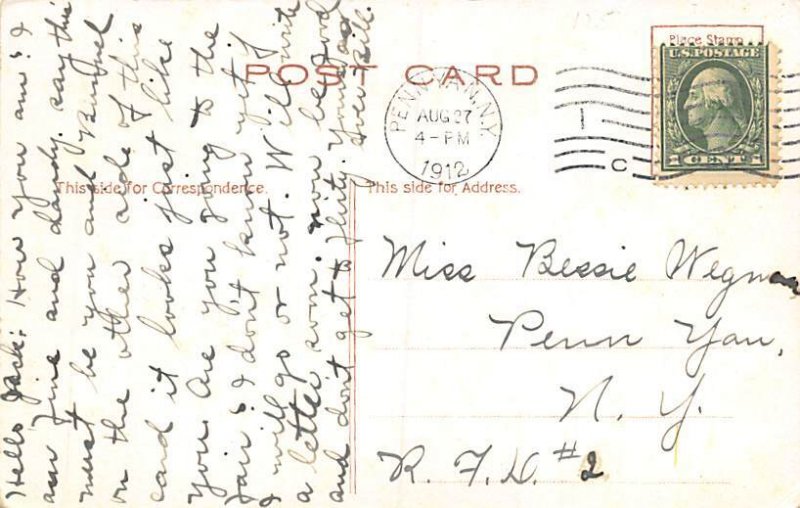 POST CARD
Place Stamp
U.S. POSTAGE
1 CENT 1
PENN YAN, N.Y.
AUG 27
4 - PM
1912
1
C
This side for Correspondence.
This side for Address.
Hello Jack: How you am? I
am fine and dandy. say this
must be you and
on the other side of this
card it looks just like
you. Are you going to the
fair? I don't know yet if
I will go or not. Will write
a letter soon. now be good
and don't get to flirty. Yours as
Ever Bill.
Miss Bessie Wegman
Penn Yan,
N. Y.
R. F. D. #2